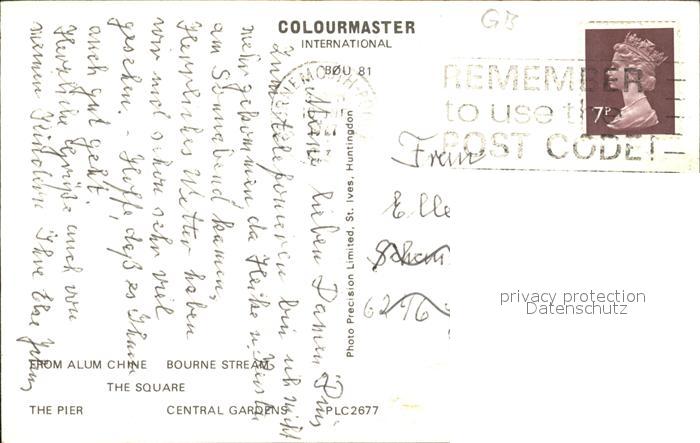 COLOURMASTER
INTERNATIONAL
BØU 81
GB
REMEMBER
to use the
POST CODE!
7P
Photo Precision Limited, St. Ives, Huntingdon
Meine lieben Damen!
Zum telefonieren bin ich nicht
mehr gekommen da Heike u.
am Sonnabend kamen,
Herrliches Wetter haben
wir und schon sehr viel
gesehen. - Hoffe, daß es Ihnen
auch gut geht
Herzliche Grüße auch von
meinen Kindern Ihre Else
Frau
Elle
Schem
6276
privacy protection
Datenschutz
FROM ALUM CHINE BOURNE STREAM
THE SQUARE
THE PIER CENTRAL GARDENS PLC2677